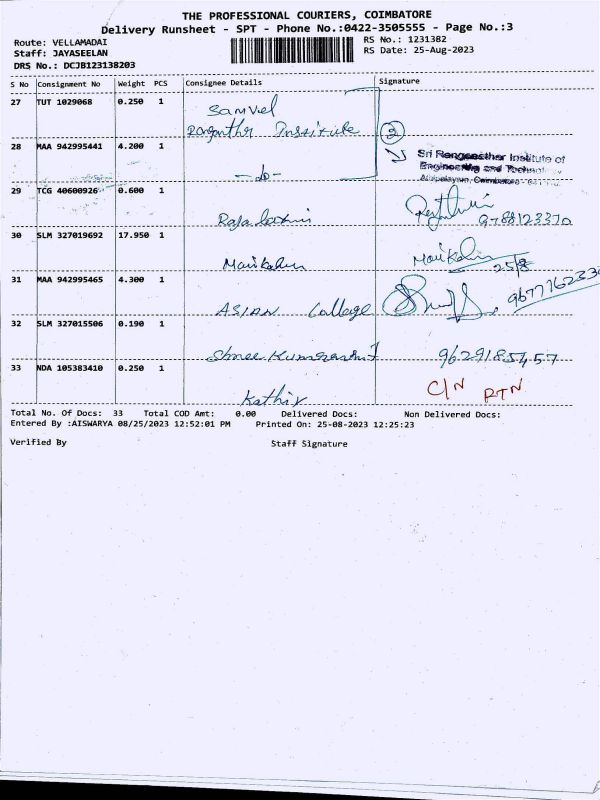 THE PROFESSIONAL COURIERS, COIMBATORE
Delivery Runsheet - SPT - Phone No.:0422-3505555 - Page No.:3
Route: VELLAMADAI
RS No.: 1231382
Staff: JAYASEELAN
RS Date: 25-Aug-2023
DRS No.: DCJB123138203
S No Consignment No Weight PCS Consignee Details Signature
27 TUT 1029068 0.250 1 Samvel
Ranganthr Institute
28 MAA 942995441 4.200 1 -do- 2 Sri Ranganathar Institute of
Engineering and Technology
29 TCG 40600926 0.600 1 Rajalakshmi 9788123370
30 SLM 327019692 17.950 1 Manikalin Manikalin
25/8
31 MAA 942995465 4.300 1 ASIAN College 967776233
32 SLM 327015506 0.190 1 Shree 9629185457
33 NDA 105383410 0.250 1 Kathir C/N RTN
Total No. Of Docs: 33 Total COD Amt: 0.00 Delivered Docs: Non Delivered Docs:
Entered By :AISWARYA 08/25/2023 12:52:01 PM Printed On: 25-08-2023 12:25:23
Verified By Staff Signature